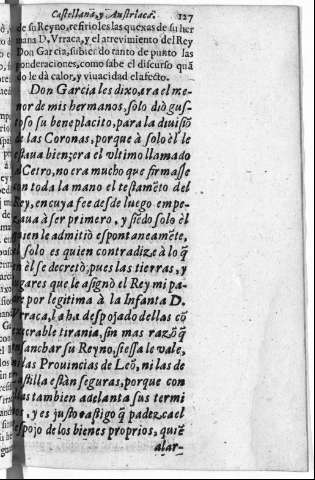 Castellana, y Austriaca. 127
de su Reyno, refirioles las quexas de su her
mana D. Vrraca, y el atrevimiento del Rey
Don Garcia, subiendo tanto de punto las
ponderaciones, como sabe el discurso quã
do le dà calor, y viuacidad el afecto.
Don Garcia les dixo, era el me-
nor de mis hermanos, solo diò gus-
toso su beneplacito, para la diuisiõ
de las Coronas, porque à solo èl le
estaua bien; era el vltimo llamado
Cetro, no era mucho que firmasse
con toda la mano el testamẽto del
Rey, en cuya fee desde luego empe-
zaua à ser primero, y siẽdo solo èl
quien le admitiò espontaneamẽte,
solo es quien contradize à lo q̃
en èl se decretò, pues las tierras, y
lugares que le asignò el Rey mi pa-
dre por legitima à la Infanta D.
Vrraca, la ha despojado dellas cõ
execrable tirania, sin mas razõ q̃
ensanchar su Reyno, si essa le vale,
ni las Prouincias de Leõ, ni las de
Castilla estàn seguras, porque con
ellas tambien adelanta sus termi
nos, y es justo castigo q̃ padezca el
despojo de los bienes proprios, quiẽ
alar-